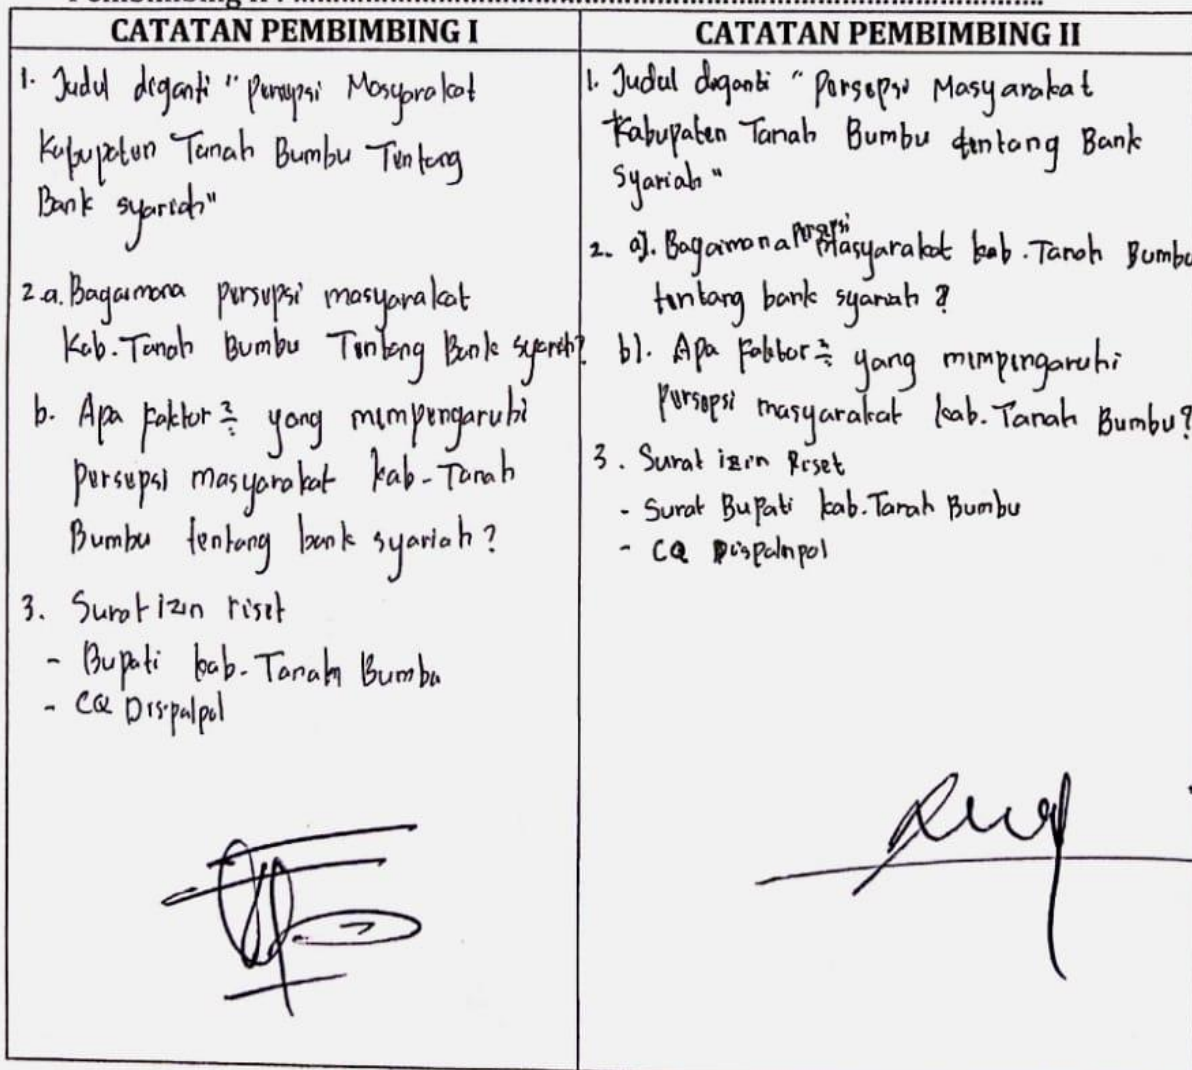 Pembimbing II :
CATATAN PEMBIMBING I
1. Judul diganti "Persepsi Masyarakat
Kabupaten Tanah Bumbu Tentang
Bank syariah"
2.a. Bagaimana persepsi masyarakat
Kab. Tanah Bumbu Tentang Bank syariah?
b. Apa faktor² yang mempengaruhi
persepsi masyarakat kab. Tanah
Bumbu tentang bank syariah?
3. Surat izin riset
- Bupati kab. Tanah Bumbu
- CQ Dispalpol
CATATAN PEMBIMBING II
1. Judul diganti "Persepsi Masyarakat
Kabupaten Tanah Bumbu tentang Bank
Syariah"
2. a). Bagaimana Persepsi Masyarakat kab. Tanah Bumbu
tentang bank syariah?
b). Apa Faktor² yang mempengaruhi
Persepsi masyarakat kab. Tanah Bumbu?
3. Surat izin Riset
- Surat Bupati kab. Tanah Bumbu
- CQ